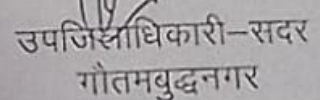 उपजिलाधिकारी-सदर
गौतमबुद्धनगर